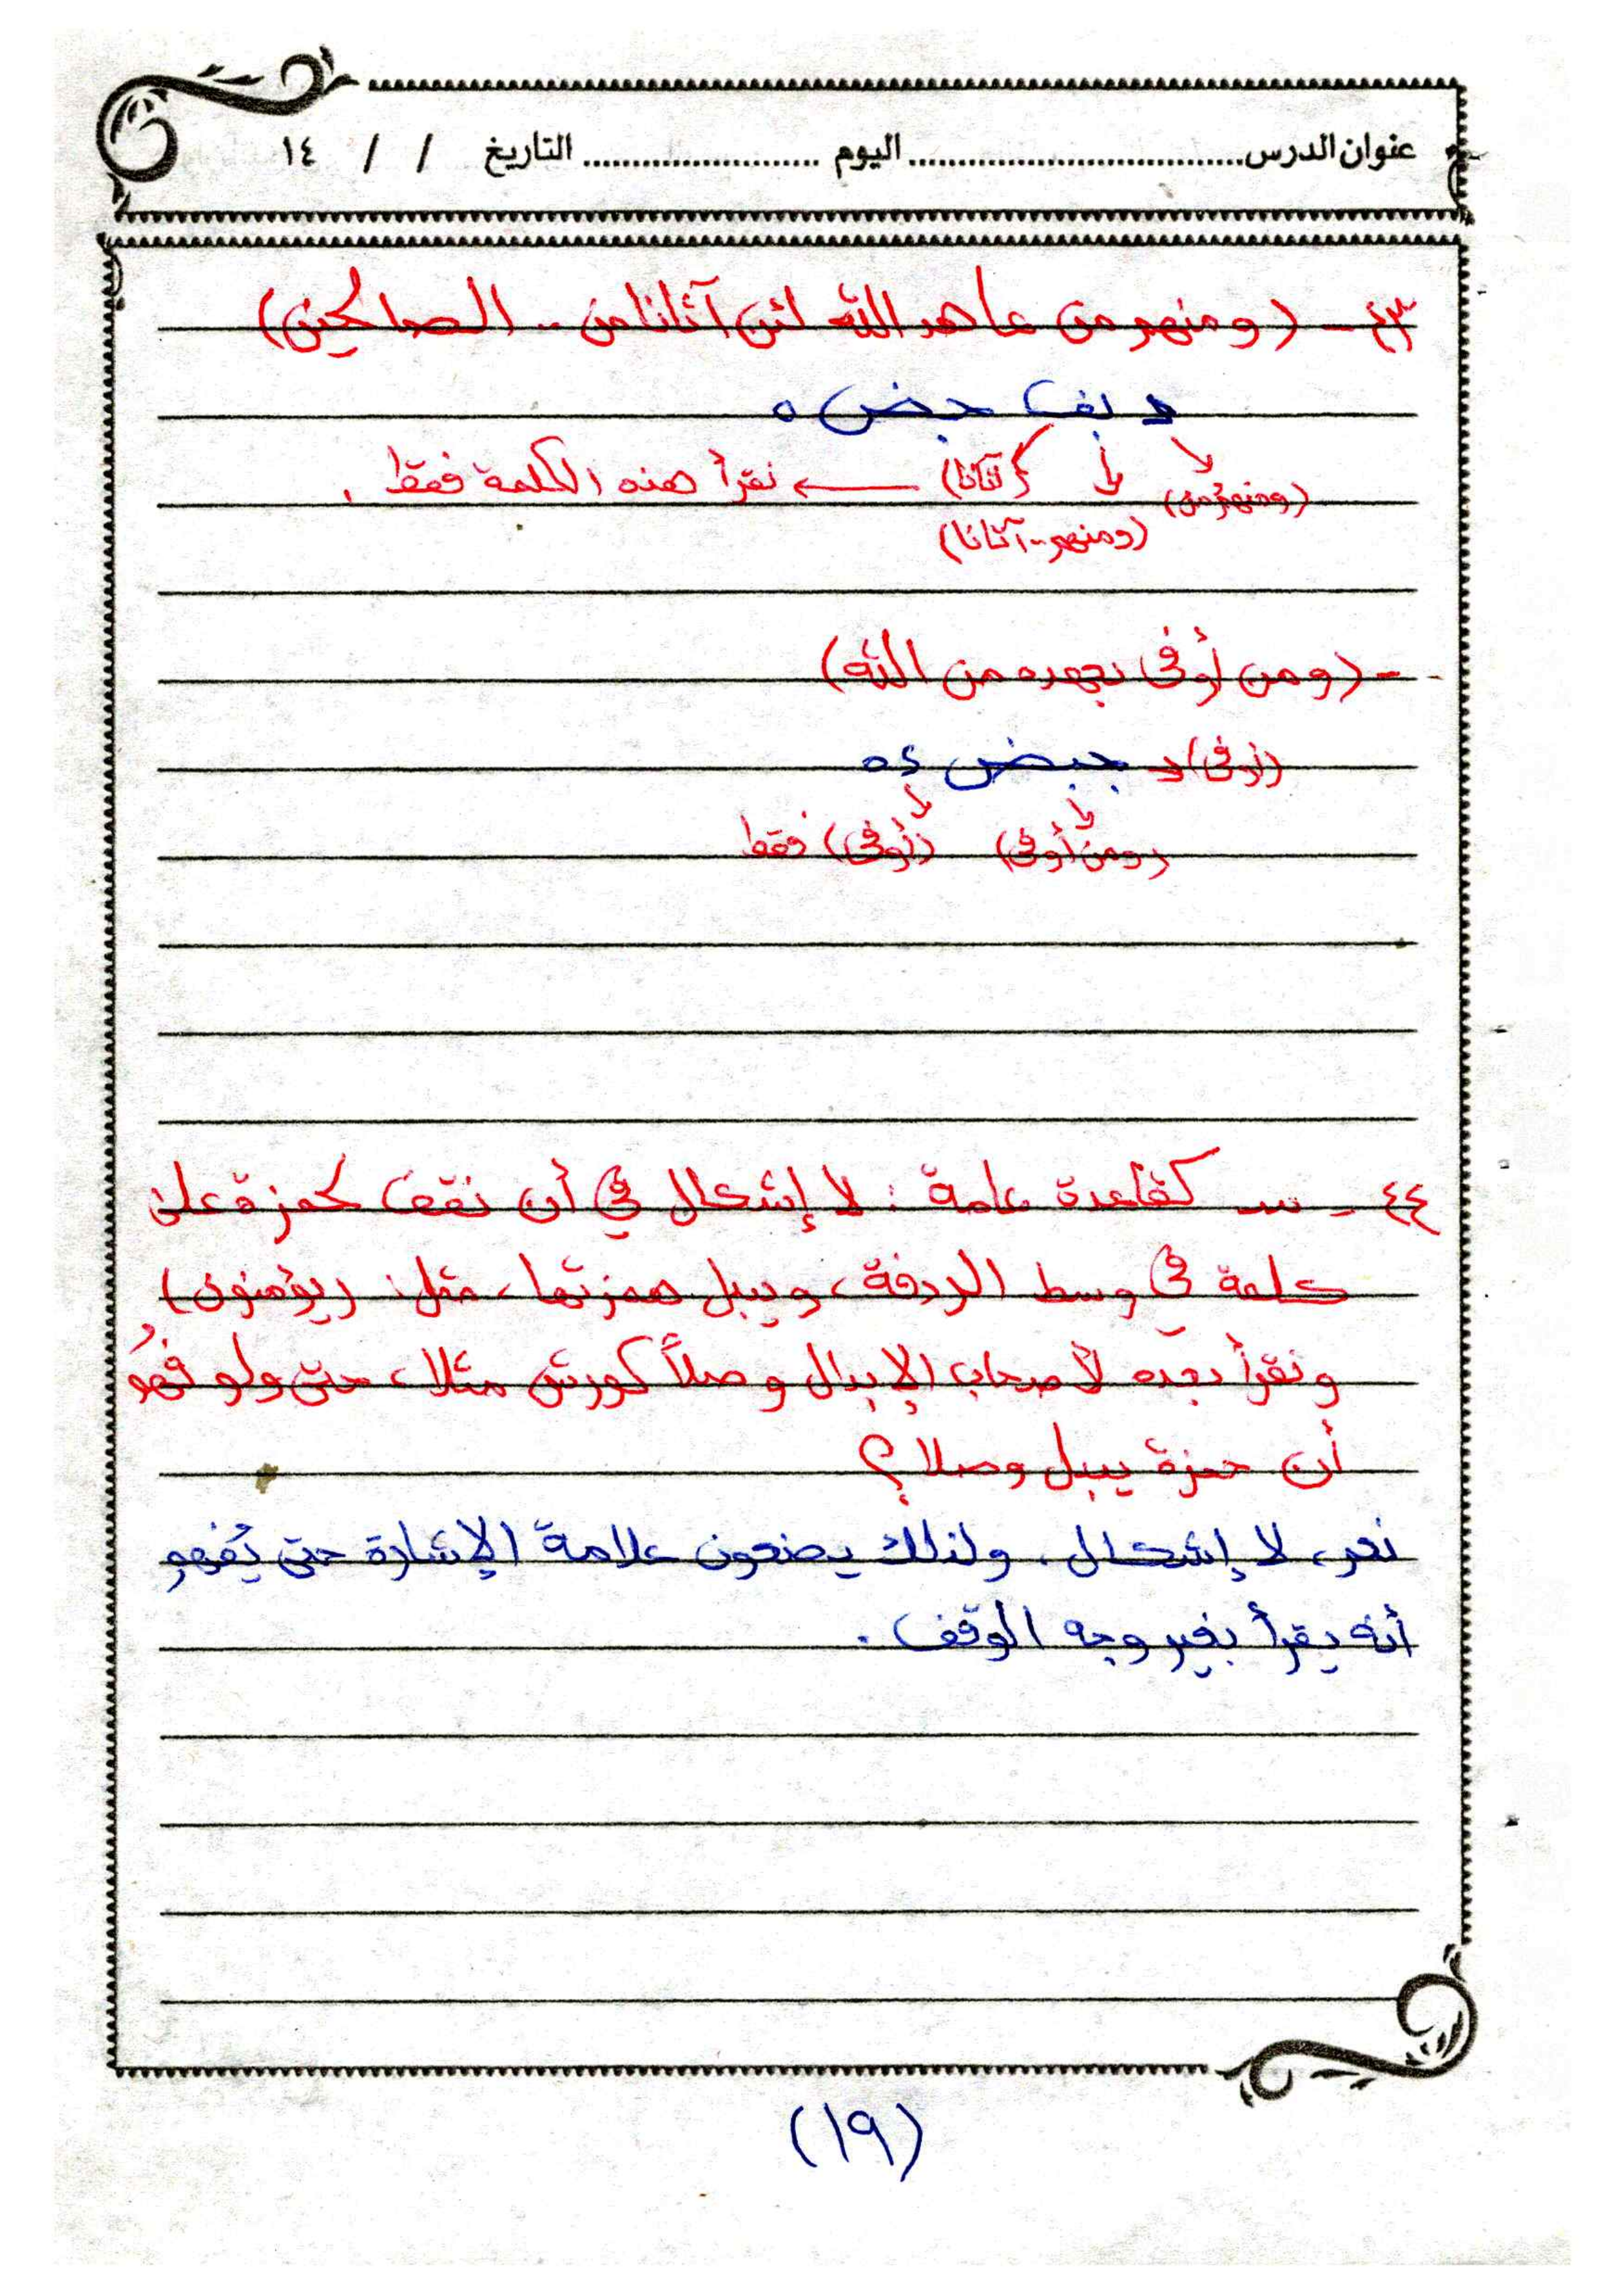 عنوان الدرس................................ اليوم ........................ التاريخ / / ١٤
٤٣ - (ومنهم من عاهد الله لئن آتانا من .. الصالحين)
د بف جض ه
(ومنهم من) (آتانا) ← نقرأ هذه الكلمة فقط .
(ومنهم .. آتانا)
- (ومن أوفى بعهده من الله)
(أوفى) د جبض ء ه
(ومن أوفى) (أوفى) فقط
٤٤ - س كقاعدة عامة : لا إشكال في أن نقف لحمزة على
كلمة في وسط الردفة ، ويبدل همزتها ، مثل : (يؤمنون) ،
ونقرأ بعده لأصحاب الإبدال وصلاً كورش مثلا ، حتى ولو فُهِمَ
أن حمزة يبدل وصلا ؟
نعم ، لا إشكال ، ولذلك يضعون علامة الإشارة حتى يُفهم
أنه يقرأ بغير وجه الوقف .
(١٩)